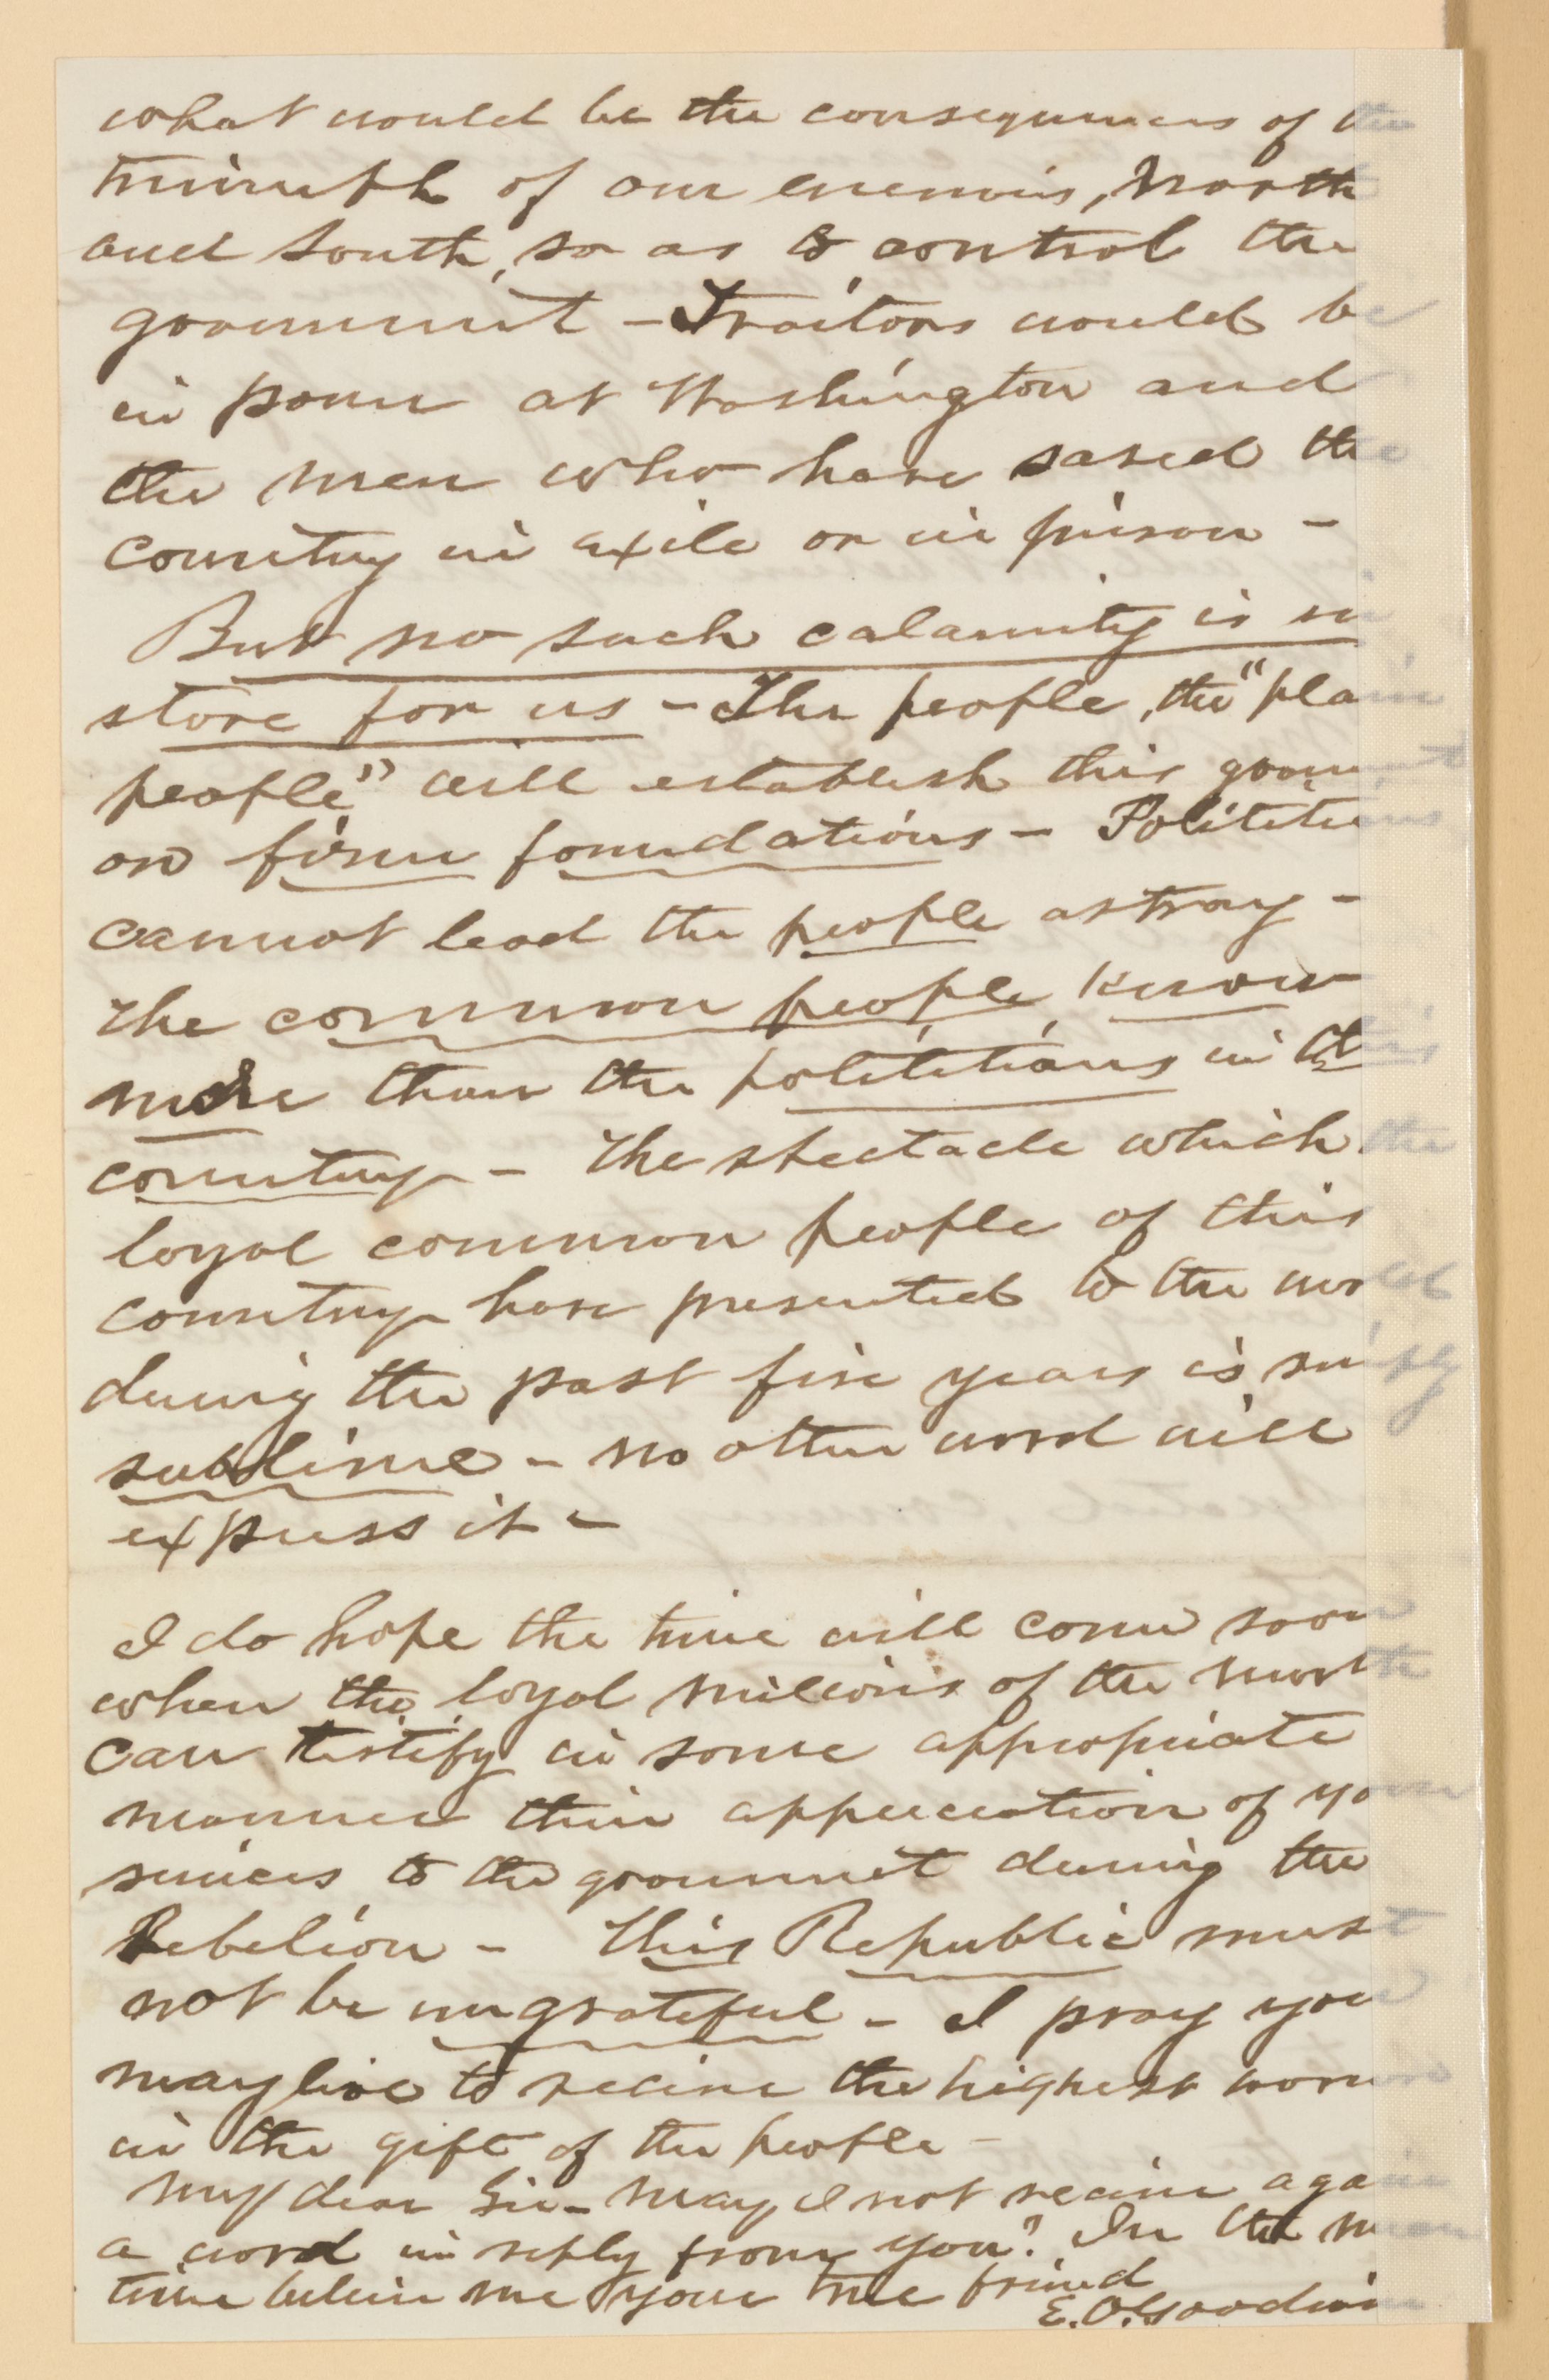 what would be the consequences of the
triumph of our enemies, North
and South, so as to control the
government - Traitors would be
in power at Washington and
the men who have saved the
country in exile or in prison -
But no such calamity is in
store for us - The people, the "plain
people" will establish this government
on firm foundations - Polititians
cannot lead the people astray -
The common people know
more than the polititians in this
country - The spectacle which the
loyal common people of this
country have presented to the world
during the past five years is simply
sublime - no other word will
express it -
I do hope the time will come soon
when the loyal millions of the North
can testify in some appropriate
manner their appreciation of your
services to the government during the
Rebelion - This Republic must
not be ungrateful - I pray you
may live to receive the highest honors
in the gift of the people -
My dear Sir - May I not receive again
a word in reply from you? In the mean
time believe me your true friend
E. O. Goodwin